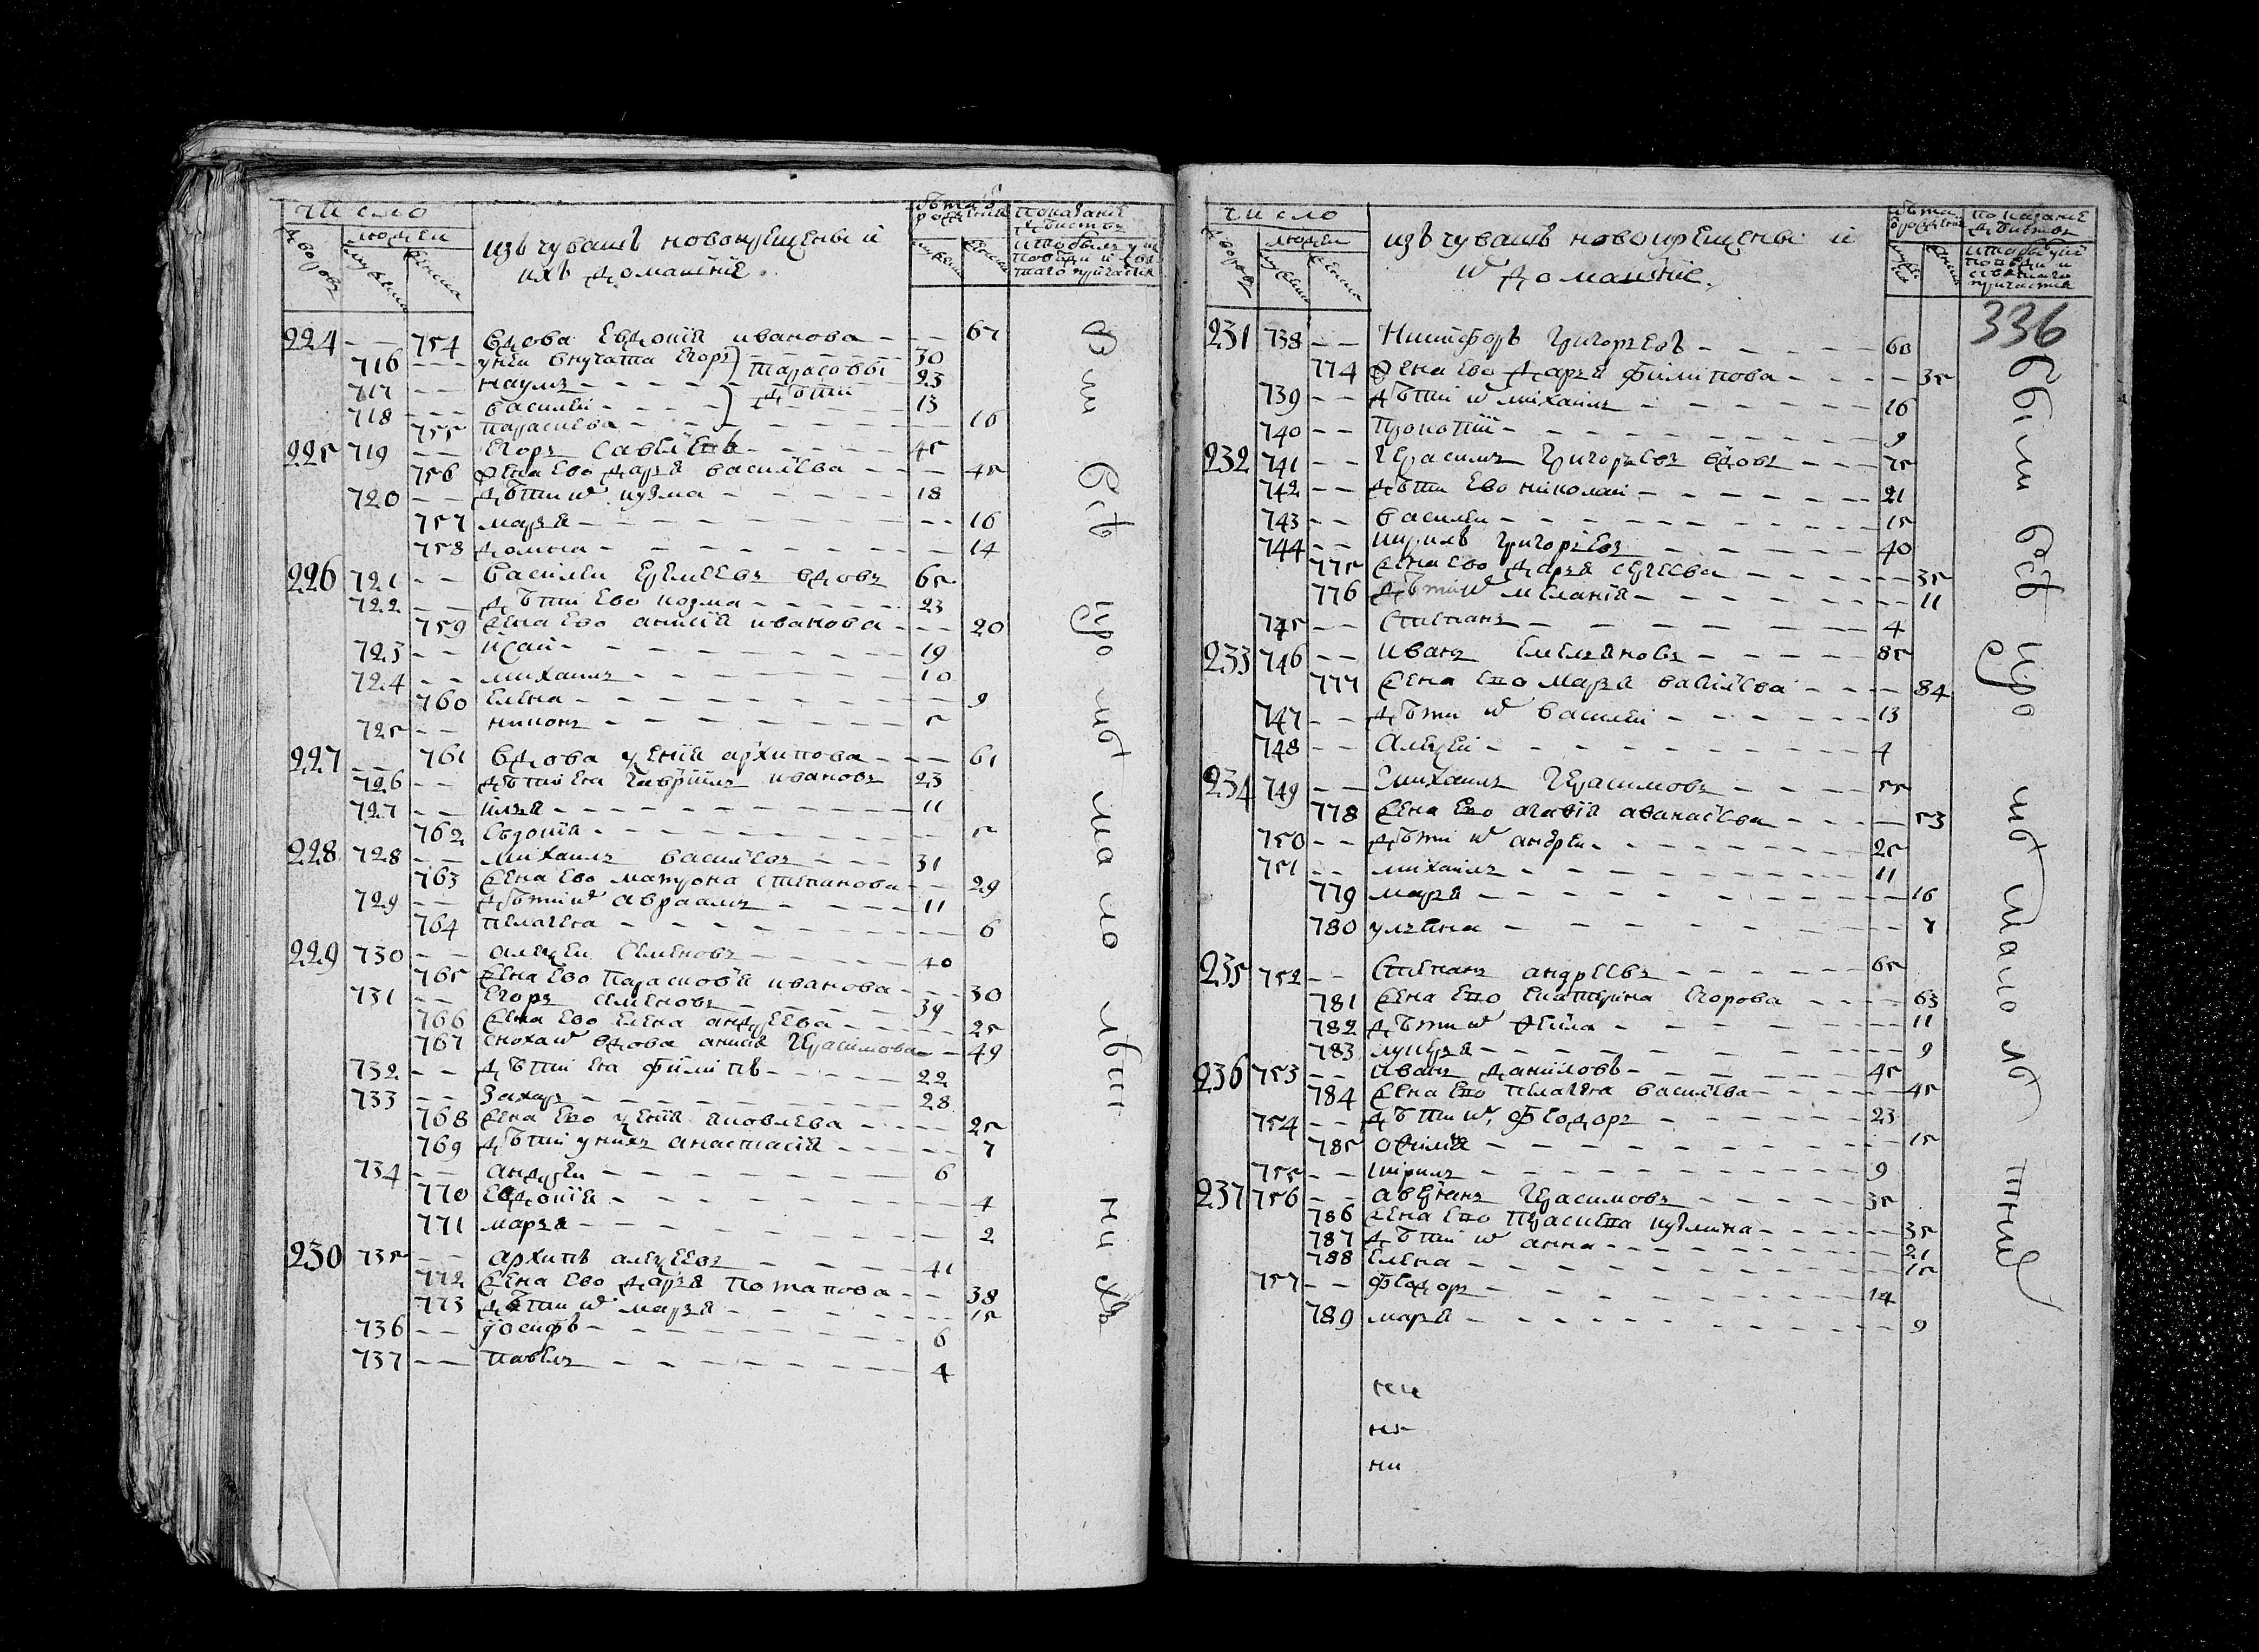 число
дворовъ
людей
мужеска
женска
изъ чувашъ новокрещены и
ихъ домашніе
лѣта от рожденія
мужска
женска
показаніе
дѣйства
кто былъ у исповѣди и святаго причастія
224 — — 754 вдова Евдокія иванова — — 67
716 — — — у неи внучата Егоръ } тарасовы 30
717 — — — наумъ — — — — 23
718 — — — василеи — — — } дѣти 13
755 параскева — — — — 16
225 719 — — Егоръ Савелевъ — — — 45
756 жена ево дарья василѣва — — — 45
720 — — дѣти их кузма — — — — 18
757 марья — — — — — — 16
758 домна — — — — — — 14
226 721 — — василеи Еремеевъ вдовъ 65
722 — — дѣти ево козма — — — — 23
759 жена ево анисия иванова — — — 20
723 — — исаи — — — — — — 19
724 — — михаилъ — — — — — 10
760 Елена — — — — — — 9
725 — — никонъ — — — — — 5
227 — — 761 вдова ксения архипова — — — 61
726 — — дѣти Ея гаврилъ ивановъ 23
727 — — илья — — — — — — 11
762 Евдокія — — — — — — 5
228 728 — — михаилъ василѣевъ — — — 31
763 жена ево матрона степанова — — 29
729 — — дѣти их авраамъ — — — — 11
764 пелагея — — — — — — 6
229 730 — — алеѯеи Семеновъ — — — 40
765 жена ево парасковія иванова — — — 30
731 — — Егоръ семеновъ — — — — 39
766 жена ево Елена андреева — — — 25
767 сноха их вдова анисия герасимова — — 49
732 — — дѣти Ея филипъ — — — — 22
733 — — Захаръ — — — — — — 28
768 жена Ево ксения яковлева — — — 25
769 дѣти у нихъ анастасия — — — — 7
734 — — андреи — — — — — — 6
770 Евдокія — — — — — — 4
771 марья — — — — — — 2
230 735 — — архипъ алеѯеевъ — — — — 41
772 жена ево дарья потапова — — 38
773 дѣти их марья — — — — — 15
736 — — іосифъ — — — — — — 6
737 — — павелъ — — — — — — 4
число
дворовъ
людей
мужеска
женска
изъ чувашъ новокрещены и
их домашніе.
лѣта от рожденія
показаніе
дѣйства
кто былъ у исповѣди и святаго причастія
336
231 738 — — Никифоръ григорьевъ — — — — 60
774 жена ево дарья филипова — — — — 35
739 — — дѣти их михаилъ — — — — 16
740 — — Прокопіи — — — — — — 9
232 741 — — герасимъ григорьевъ вдовъ — — — 75
742 — — дѣти Ево николаи — — — — 21
743 — — василеи — — — — — — 15
744 — — кирилъ григорьевъ — — — — 40
775 жена ево дарья сергеева — — — — 35
776 дѣти их меланія — — — — — 11
745 — — Степанъ — — — — — — 4
233 746 — — иванъ Емельяновъ — — — — 85
777 жена Ево марья васиљева — — — 84
747 — — дѣти их василеи — — — — 13
748 — — Алеѯеи — — — — — — 4
234 749 — — михаилъ герасимовъ — — — — 55
778 жена Ево агафія афанасѣва — — — — 53
750 — — дѣти их андреи — — — — — 25
751 — — михаилъ — — — — — — 11
779 марья — — — — — — 16
780 ульяна — — — — — — 7
235 752 — — Степанъ андреевъ — — — — 65
781 жена Ево Екатерина Егорова — — — 63
782 дѣти их фекла — — — — — 11
783 лукерья — — — — — — 9
236 753 — — иванъ даниловъ — — — — 45
784 жена Ево пелагея василѣва — — — 45
754 — — дѣти их Феодоръ — — — — 23
785 офимья — — — — — — 15
755 — — кирилъ — — — — — — 9
237 756 — — аверянъ герасимовъ — — — — 35
786 жена Ево параскева кузмина — — — 35
787 дѣти их анна — — — — — 21
788 Елена — — — — — — 15
757 — — Феодоръ — — — — — — 14
789 марья — — — — — — 9